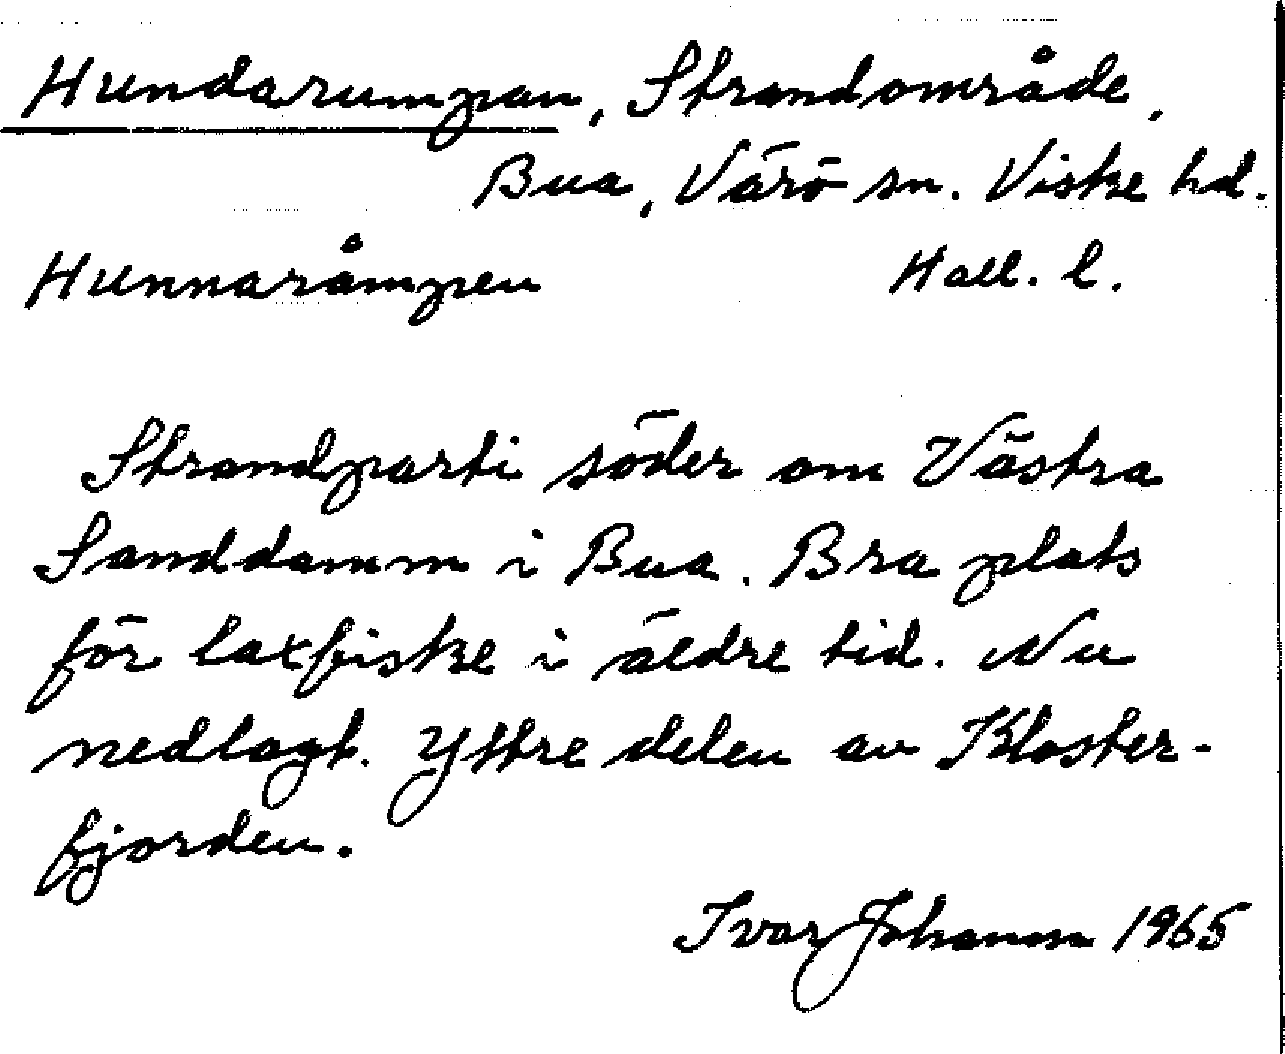 Hundarumpan, Strandområde,
Bua, Värö sn. Viske hd.
Hunnaråmpen Hall. l.
Strandparti söder om Västra
Sanddamm i Bua. Bra plats
för laxfiske i äldre tid. Nu
nedlagt. Yttre delen av Kloster-
fjorden.
Ivar Johanson 1965